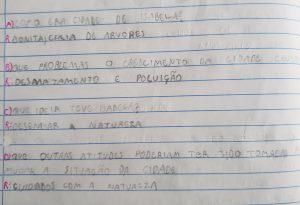 A) COCO ERA CIDADE DE ISABELA?
R: BONITA, CHEIA DE ARVORES
B) QUE PROBLEMAS O CRESCIMENTO DA CIDADE
R: DESMATAMENTO E POLUIÇÃO
C) QUE IDEIA TEVE
R: DESENHAR A NATUREZA
D) QUE OUTRAS ATITUDES PODERIAM TER SIDO TOMADAS
MUDAR A SITUAÇÃO DA CIDADE
R: CUIDADOS COM A NATUREZA